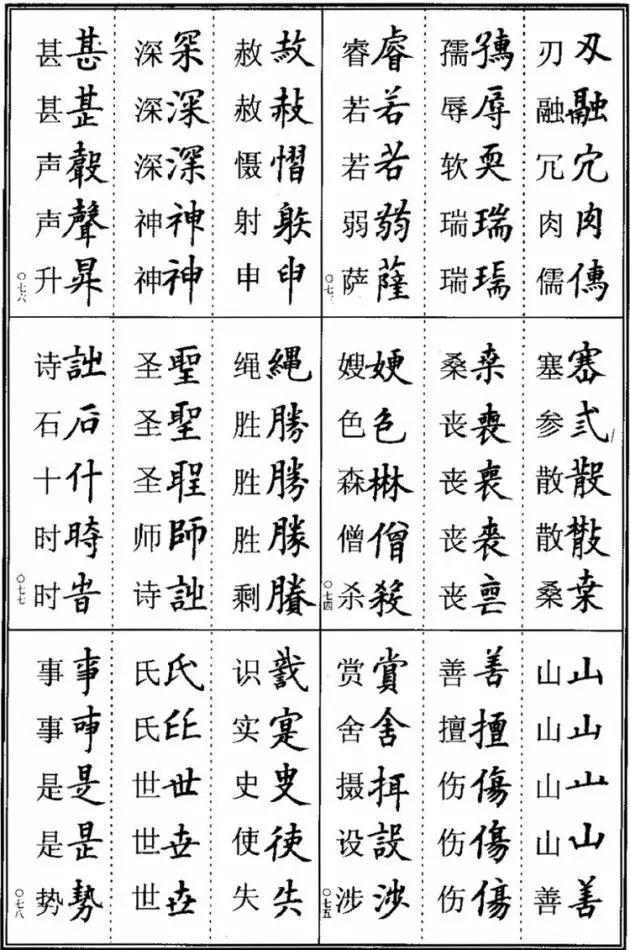 刃刃 融融 冗冗 肉肉 儒
孺 辱辱 软耎 瑞瑞 瑞
睿睿 若若 若若 弱弱 萨薩
〇七三
塞 参 散散 散 桑桒
桑桒 丧喪 丧 丧 丧
嫂㛐 色色 森 僧僧 杀殺
〇七四
山山 山山 山山 山山 善善
善善 擅擅 伤傷 伤傷 伤傷
赏賞 舍舍 摄 设設 涉涉
〇七五
赦 赦赦 慑慴 射 申申
深 深深 深深 神神 神神
甚甚 甚甚 声 声聲 升昇
〇七六
绳繩 胜勝 胜勝 胜勝 剩賸
圣聖 圣聖 圣 师師 诗詩
诗詩 石石 十什 时時 时旹
〇七七
识 实寔 史史 使使 失失
氏氏 氏 世世 世世 世世
事事 事 是是 是是 势勢
〇七八